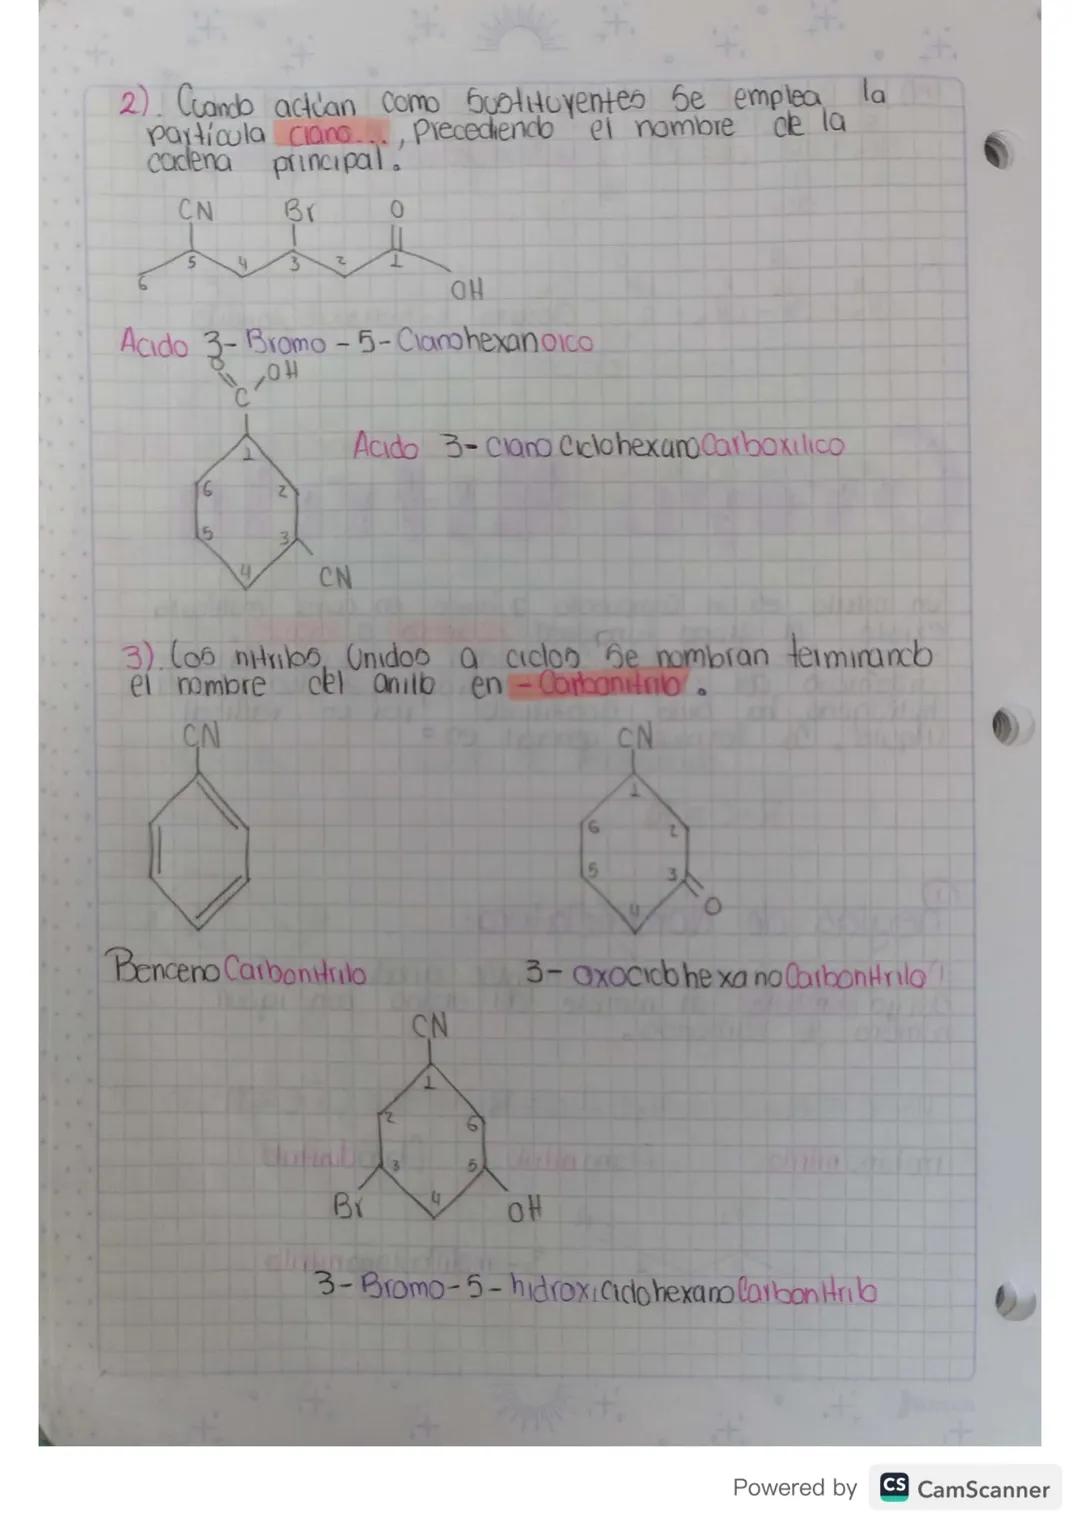 2). Cuando actúan como Sustituyentes Se emplea la
partícula ciano..., Precediendo el nombre de la
cadena principal.
CN Br O
6 5 4 3 2 1
OH
Acido 3-Bromo-5-Cianohexanoico
O OH
C
Acido 3-Ciano CiclohexanoCarboxilico
1
6 2
5 3
4
CN
3). Los nitrilos, Unidos a ciclos Se nombran terminando
el nombre del anillo en -Carbonitrilo.
CN CN
1
6 2
5 3
4 O
BencenoCarbonitrilo 3-oxociclohexanoCarbonitrilo
CN
1
2 6
3 5
4
Br OH
3-Bromo-5-hidroxiciclohexanoCarbonitrilo
Powered by CS CamScanner